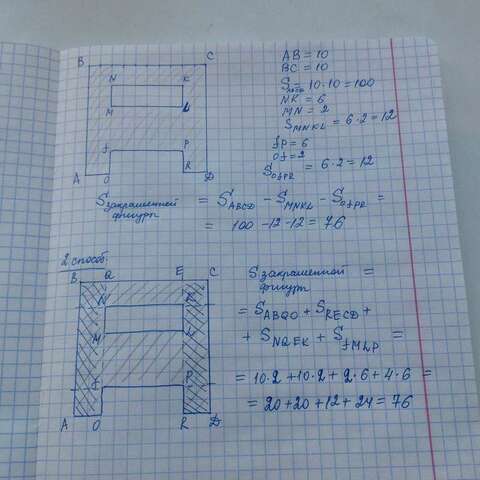 B C
N K
M L
f P
A O R D
AB = 10
BC = 10
S_ABCD = 10·10 = 100
NK = 6
MN = 2
S_MNKL = 6·2 = 12
fP = 6
Of = 2
S_OfPR = 6·2 = 12
S закрашенной фигуры = S_ABCD − S_MNKL − S_OfPR =
= 100 − 12 − 12 = 76
2 способ:
B Q E C
N K
M L
f P
A O R D
S закрашенной фигуры =
= S_ABQO + S_RECD +
+ S_NQEK + S_fMLP =
= 10·2 + 10·2 + 2·6 + 4·6 =
= 20 + 20 + 12 + 24 = 76